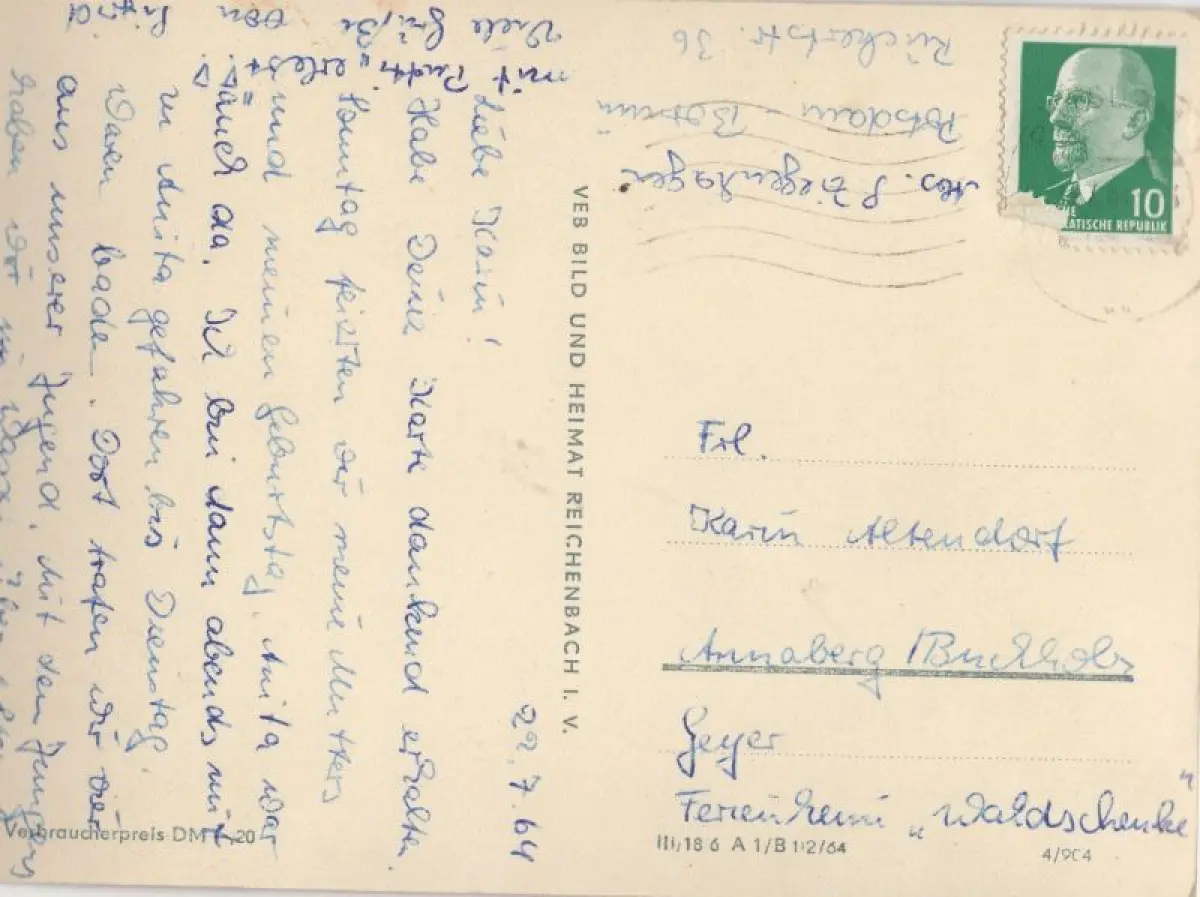 22.7.64
Liebe Karin!
Habe Deine Karte dankend erhalten.
Sonntag feierten wir meine Mutters
und meinen Geburtstag. Anita war
auch da. Ich bin dann abends mit
zu Anita gefahren bis Dienstag.
Waren baden. Dort trafen wir vier
aus unserer Jugend. Mit dem Jungens
haben wir
Viele Grüße
von
mit
Abs. S. Ziegenhagen
Potsdam - Bornim
Rückertstr. 36
10
DEMOKRATISCHE REPUBLIK
VEB BILD UND HEIMAT REICHENBACH I. V.
Frl.
Karin Altendorf
Annaberg / Buchholz
Geyer
Ferienheim „Waldschenke"
Verbraucherpreis DM 0,20
III/18 6 A 1/B 112/64
4/904